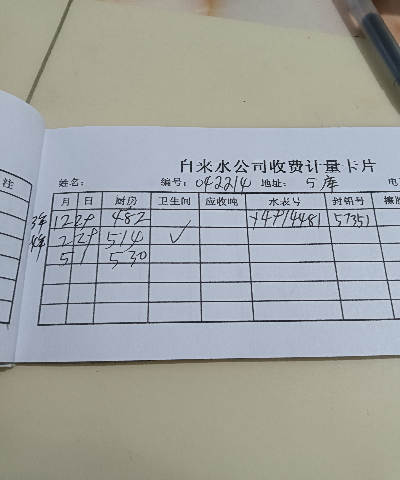 自来水公司收费计量卡片
注 姓名： 编号：042214 地址：5库 电
月 日 厨房 卫生间 应收吨 水表号 封铅号
12 29 482 57351
2 29 514 ✓
5 1 530